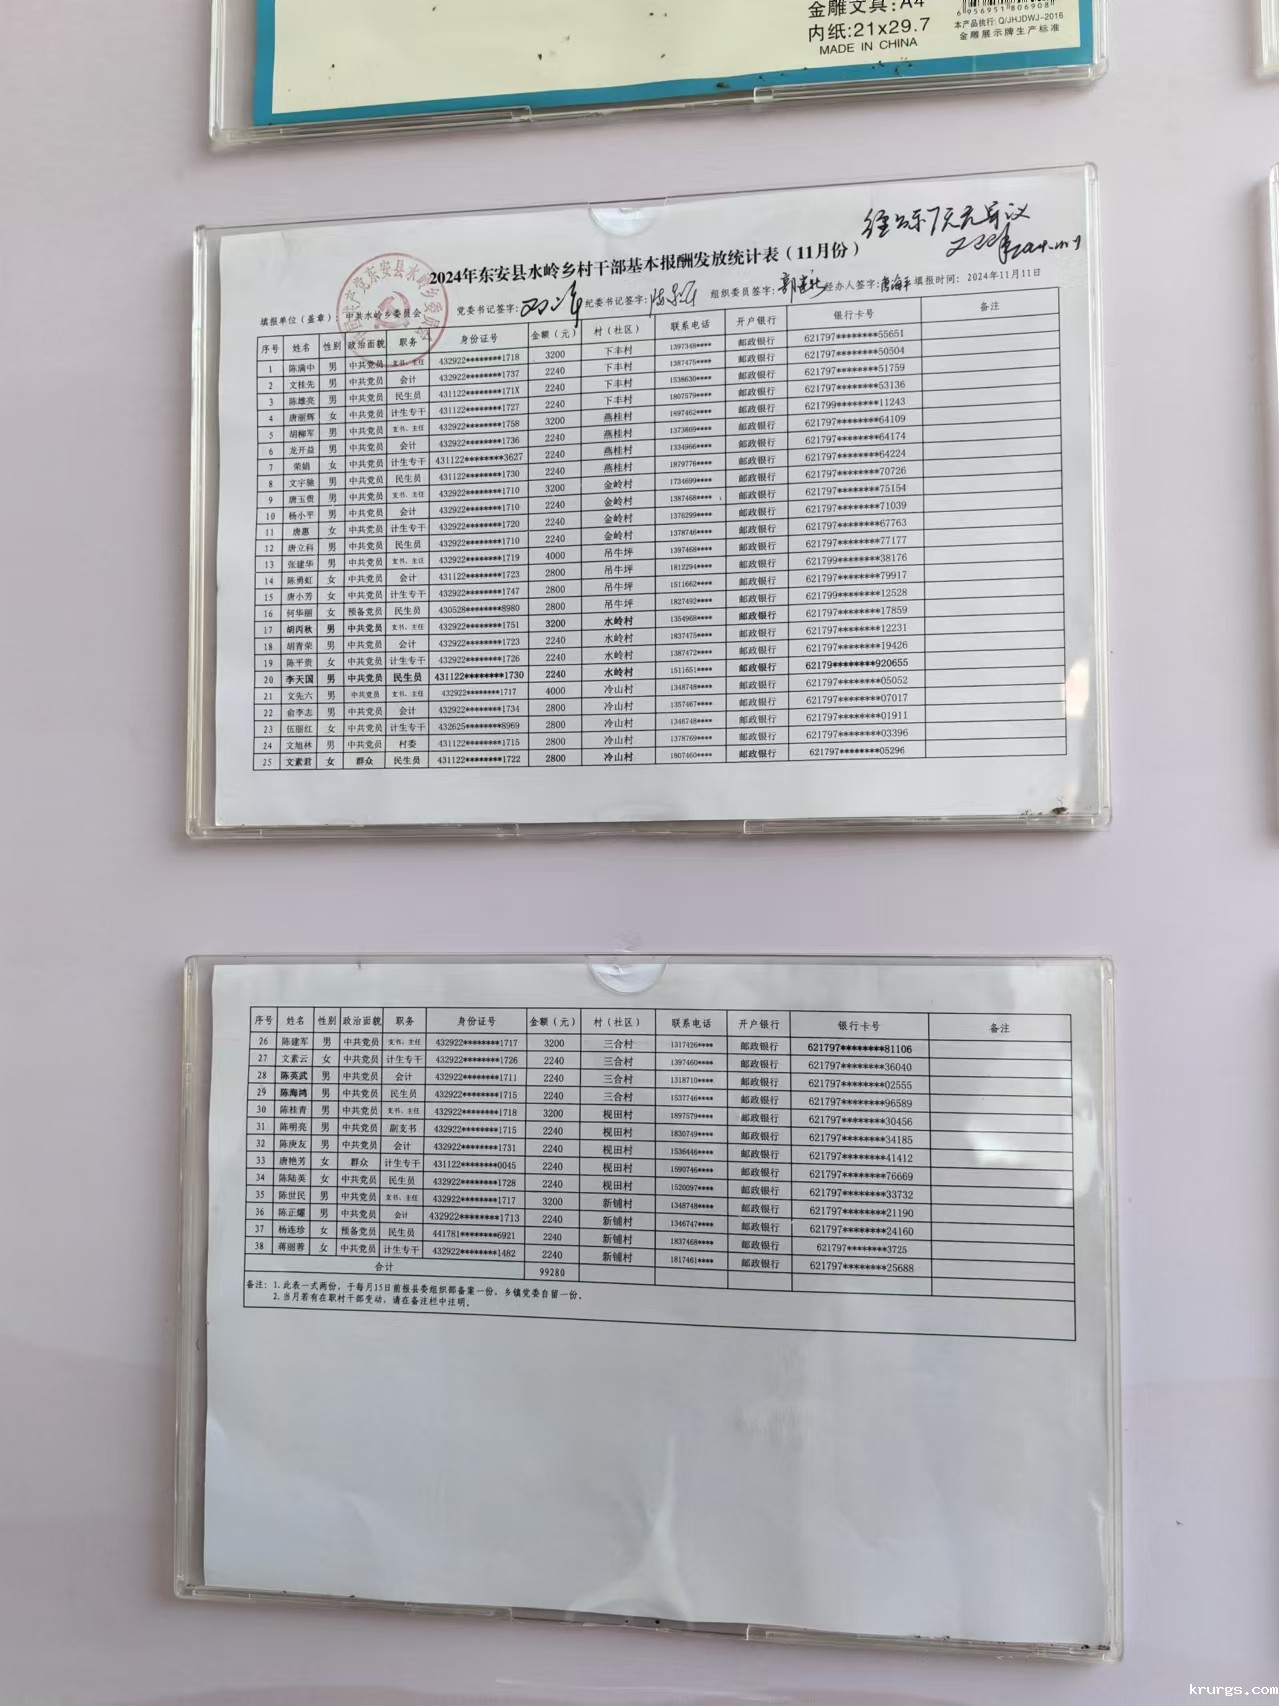 金雕文具:A4
内纸:21x29.7
MADE IN CHINA
6 956951 806908
本产品执行: Q/JHJDWJ-2016
金雕展示牌生产标准
经公示7天无异议
2024年东安县水岭乡村干部基本报酬发放统计表（11月份）
填报单位（盖章）：中共水岭乡委员会 党委书记签字: 纪委书记签字: 组织委员签字: 经办人签字: 填报时间: 2024年11月11日
序号 姓名 性别 政治面貌 职务 身份证号 金额（元） 村（社区） 联系电话 开户银行 银行卡号 备注
1 陈满中 男 中共党员 支书、主任 432922********1718 3200 下丰村 1397348**** 邮政银行 621797********55651
2 文桂先 男 中共党员 会计 432922********1737 2240 下丰村 1387475**** 邮政银行 621797********50504
3 陈雄亮 男 中共党员 民生员 431122********171X 2240 下丰村 1538630**** 邮政银行 621797********51759
4 唐丽辉 女 中共党员 计生专干 431122********1727 2240 下丰村 1807579**** 邮政银行 621797********53136
5 胡柳军 男 中共党员 支书、主任 432922********1758 3200 燕桂村 1897462**** 邮政银行 621799********11243
6 龙开益 男 中共党员 会计 432922********1736 2240 燕桂村 1373869**** 邮政银行 621797********64109
7 荣娟 女 中共党员 计生专干 431122********3627 2240 燕桂村 1334966**** 邮政银行 621797********64174
8 文宇驰 男 中共党员 民生员 431122********1730 2240 燕桂村 1879776**** 邮政银行 621797********64224
9 唐玉贵 男 中共党员 支书、主任 432922********1710 3200 金岭村 1734699**** 邮政银行 621797********70726
10 杨小平 男 中共党员 会计 432922********1710 2240 金岭村 1387468**** 邮政银行 621797********75154
11 唐惠 女 中共党员 计生专干 432922********1720 2240 金岭村 1376299**** 邮政银行 621797********71039
12 唐立科 男 中共党员 民生员 432922********1710 2240 金岭村 1378746**** 邮政银行 621797********67763
13 张建华 男 中共党员 支书、主任 432922********1719 4000 吊牛坪 1397468**** 邮政银行 621797********77177
14 陈勇虹 女 中共党员 会计 431122********1723 2800 吊牛坪 1812294**** 邮政银行 621799********38176
15 唐小芳 女 中共党员 计生专干 432922********1747 2800 吊牛坪 1511662**** 邮政银行 621797********79917
16 何华丽 女 预备党员 民生员 430528********8980 2800 吊牛坪 1827492**** 邮政银行 621799********12528
17 胡丙秋 男 中共党员 支书、主任 432922********1751 3200 水岭村 1354968**** 邮政银行 621797********17859
18 胡青荣 男 中共党员 会计 432922********1723 2240 水岭村 1837475**** 邮政银行 621797********12231
19 陈平贵 女 中共党员 计生专干 432922********1726 2240 水岭村 1387472**** 邮政银行 621797********19426
20 李天国 男 中共党员 民生员 431122********1730 2240 水岭村 1511651**** 邮政银行 62179********920655
21 文先六 男 中共党员 支书、主任 432922********1717 4000 冷山村 1348748**** 邮政银行 621797********05052
22 俞李志 男 中共党员 会计 432922********1734 2800 冷山村 1357467**** 邮政银行 621797********07017
23 伍丽红 女 中共党员 计生专干 432625********8969 2800 冷山村 1346748**** 邮政银行 621797********01911
24 文旭林 男 中共党员 村委 431122********1715 2800 冷山村 1378769**** 邮政银行 621797********03396
25 文素君 女 群众 民生员 431122********1722 2800 冷山村 1807460**** 邮政银行 621797********05296
序号 姓名 性别 政治面貌 职务 身份证号 金额（元） 村（社区） 联系电话 开户银行 银行卡号 备注
26 陈建军 男 中共党员 支书、主任 432922********1717 3200 三合村 1317426**** 邮政银行 621797********81106
27 文素云 女 中共党员 计生专干 432922********1726 2240 三合村 1397460**** 邮政银行 621797********36040
28 陈英武 男 中共党员 会计 432922********1711 2240 三合村 1318710**** 邮政银行 621797********02555
29 陈海鸿 男 中共党员 民生员 432922********1715 2240 三合村 1537746**** 邮政银行 621797********96589
30 陈桂青 男 中共党员 支书、主任 432922********1718 3200 枧田村 1897579**** 邮政银行 621797********30456
31 陈明亮 男 中共党员 副支书 432922********1715 2240 枧田村 1830749**** 邮政银行 621797********34185
32 陈庚友 男 中共党员 会计 432922********1731 2240 枧田村 1536446**** 邮政银行 621797********41412
33 唐艳芳 女 群众 计生专干 431122********0045 2240 枧田村 1590746**** 邮政银行 621797********76669
34 陈陆英 女 中共党员 民生员 432922********1728 2240 枧田村 1520097**** 邮政银行 621797********33732
35 陈世民 男 中共党员 支书、主任 432922********1717 3200 新铺村 1348748**** 邮政银行 621797********21190
36 陈正耀 男 中共党员 会计 432922********1713 2240 新铺村 1346747**** 邮政银行 621797********24160
37 杨连珍 女 预备党员 民生员 441781********6921 2240 新铺村 1837468**** 邮政银行 621797********3725
38 蒋丽蓉 女 中共党员 计生专干 432922********1482 2240 新铺村 1817461**** 邮政银行 621797********25688
合计 99280
备注：1.此表一式两份，于每月15日前报县委组织部备案一份，乡镇党委自留一份。
2.当月若有在职村干部变动，请在备注栏中注明。
krurgs.com